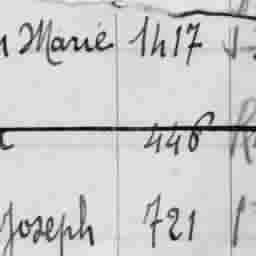 Marie 1417
446
Joseph 721